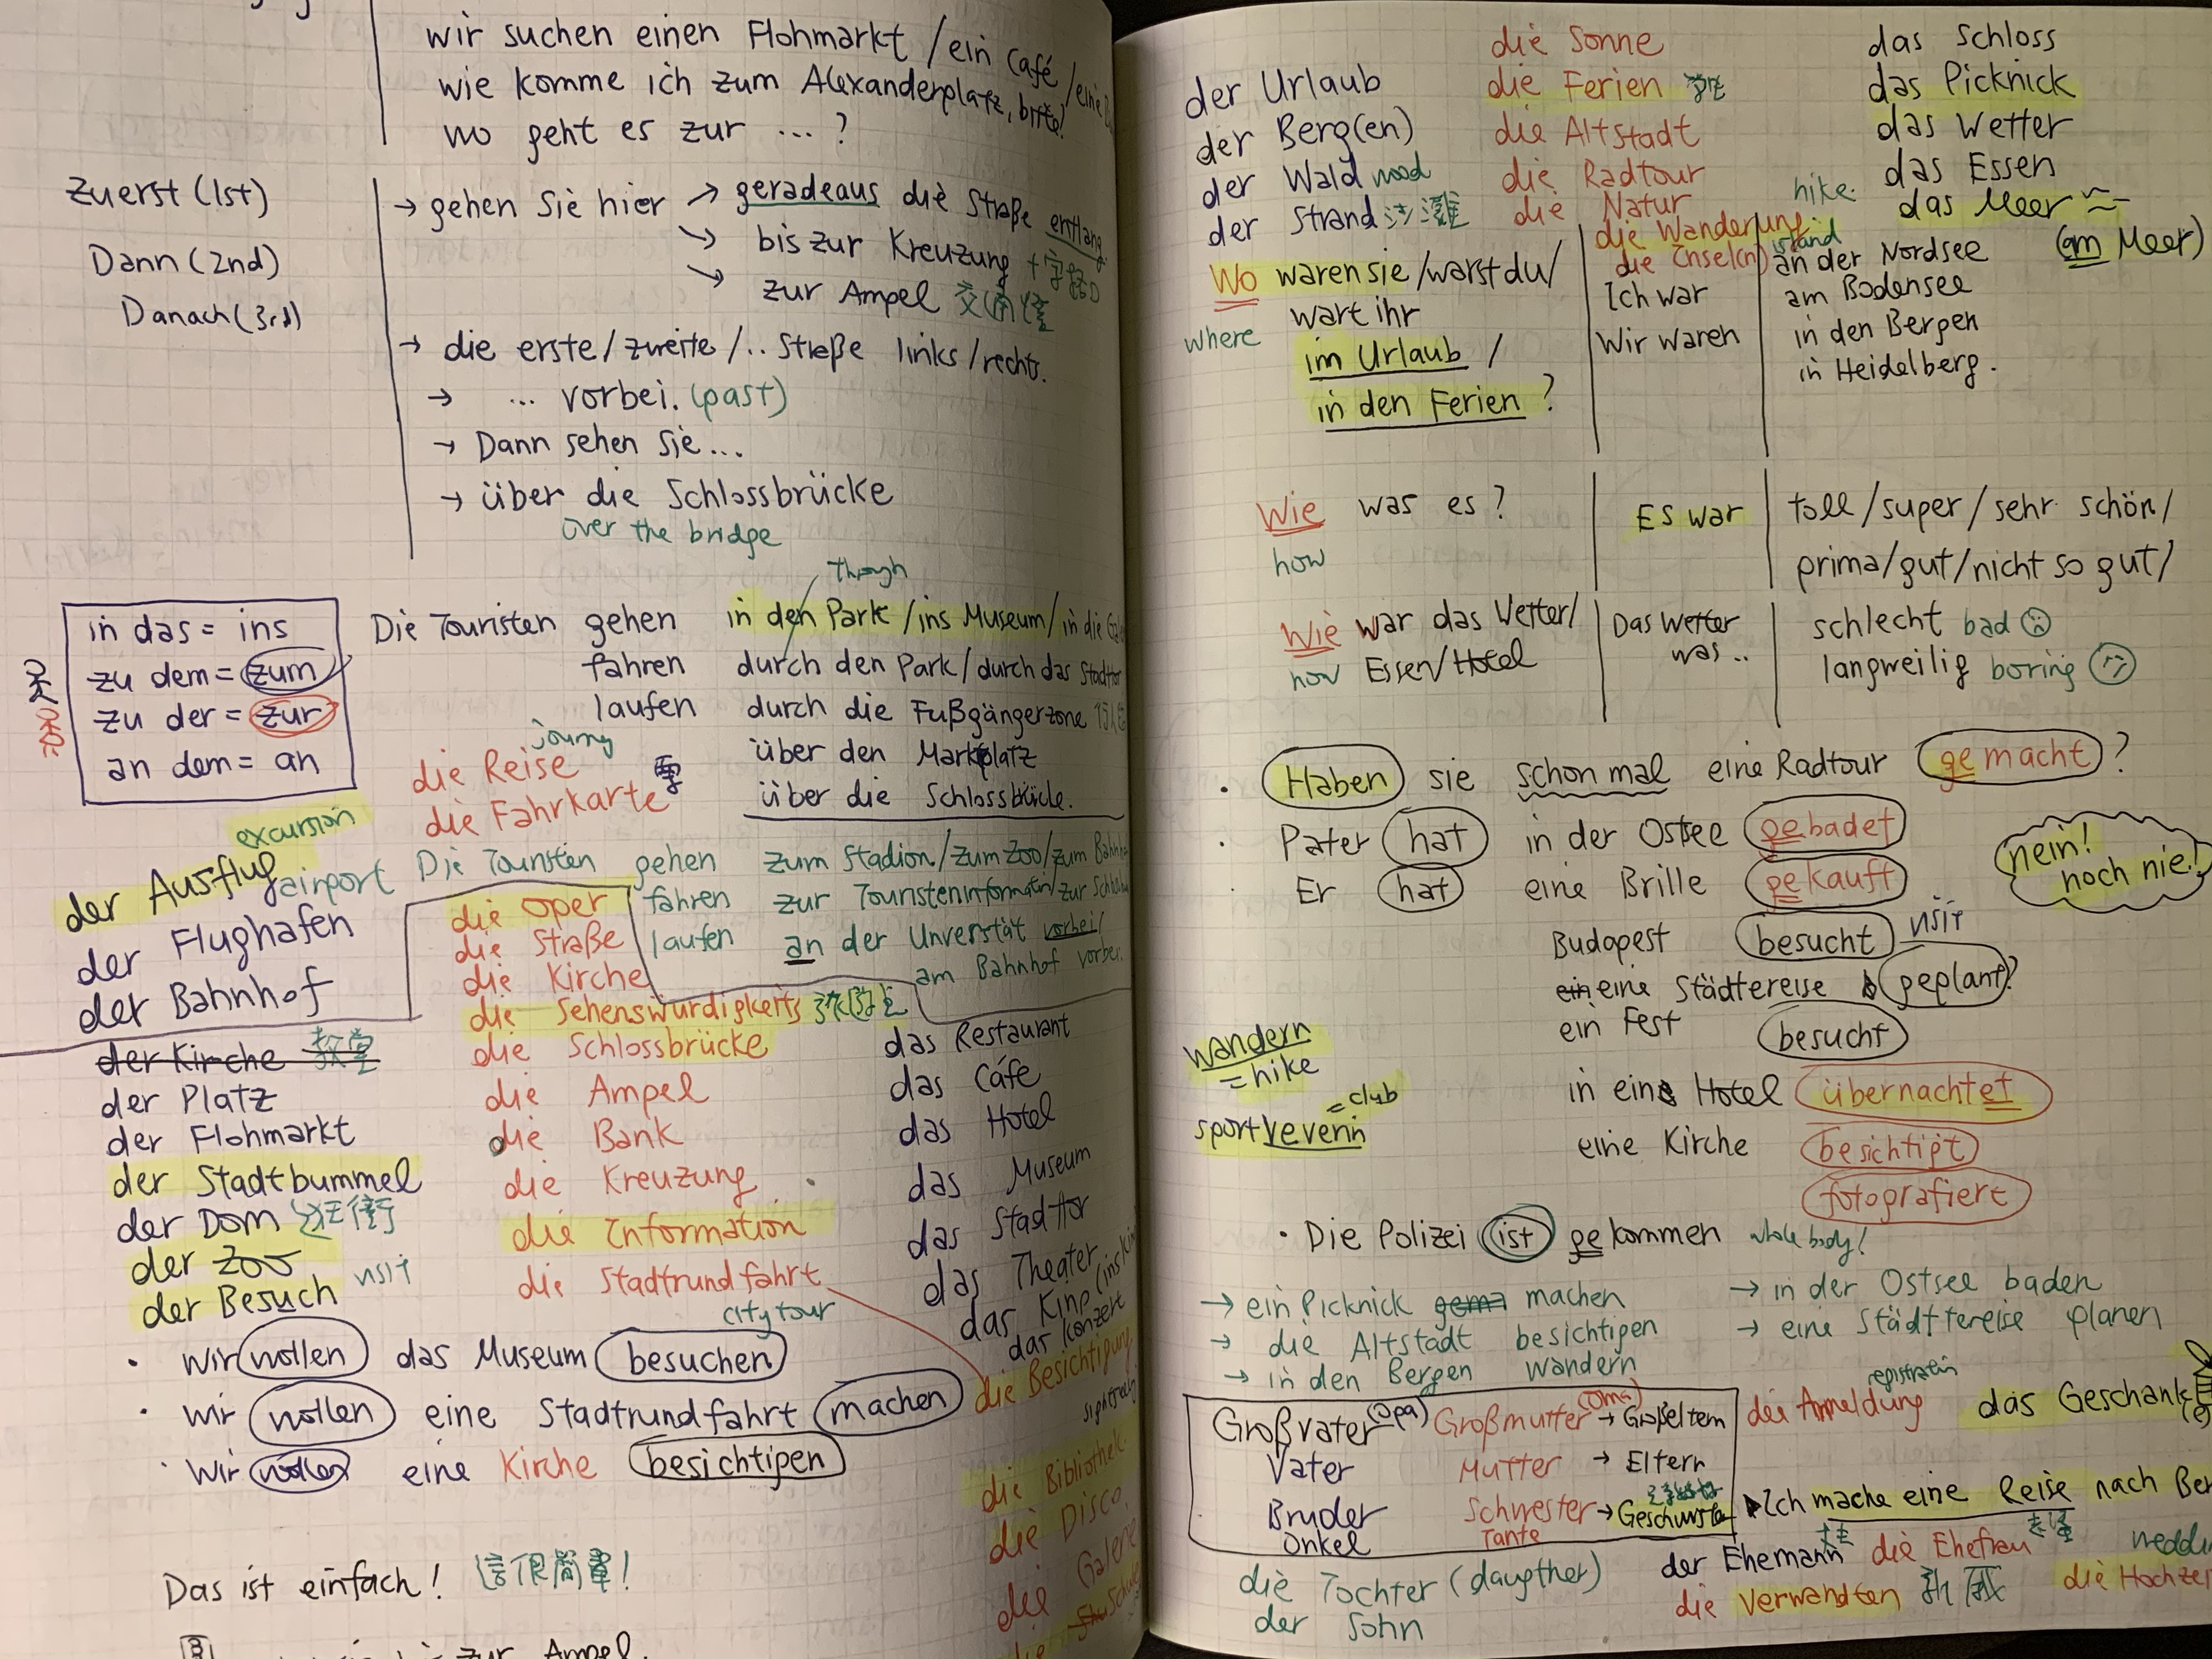 wir suchen einen Flohmarkt / ein Café / eine
wie komme ich zum Alexanderplatz, bitte?
wo geht es zur ... ?
Zuerst (1st)
Dann (2nd)
Danach (3rd)
→ gehen Sie hier → geradeaus die Straße entlang
→ bis zur Kreuzung 十字路口
→ zur Ampel
→ die erste / zweite / .. Straße links / rechts.
→ ... vorbei. (past)
→ Dann sehen Sie ...
→ über die Schlossbrücke
over the bridge
in das = ins
zu dem = zum
zu der = zur
an dem = an
though
Die Touristen gehen in den Park / ins Museum / in die
fahren durch den Park / durch das Stadttor
laufen durch die Fußgängerzone
über den Marktplatz
über die Schlossbrücke.
journy
die Reise
die Fahrkarte
Die Touristen gehen zum Stadion / zum Zoo / zum
fahren zur Touristeninformation / zur
laufen an der Unverstät vorbei /
am Bahnhof vorbei.
excursion
der Ausflug
airport
der Flughafen
der Bahnhof
der Kirche 教堂
der Platz
der Flohmarkt
der Stadtbummel
der Dom
der Zoo
der Besuch visit
die Oper
die Straße
die Kirche
die Sehenswürdigkeits
die Schlossbrücke
die Ampel
die Bank
die Kreuzung
die Information
die Stadtrundfahrt
city tour
das Restaurant
das Cáfe
das Hotel
das Museum
das Stadttor
das Theater
das Kino (ins Kino
das Konzert
die Besichtigung
die Bibliothek
die Disco
die Galerie
die
• Wir wollen das Museum besuchen
• Wir wollen eine Stadtrundfahrt machen
• Wir wollen eine Kirche besichtigen
Das ist einfach! 這很簡單!
zur Ampel.
der Urlaub
der Berg(en)
der Wald wood
der Strand 沙灘
die Sonne
die Ferien
die Altstadt
die Radtour
die Natur
hike.
die Wanderung
island
die Insel(n)
das Schloss
das Picknick
das Wetter
das Essen
das Meer
(am Meer)
Wo waren sie / warst du /
where
wart ihr
im Urlaub /
in den Ferien ?
Ich war
Wir waren
an der Nordsee
am Bodensee
in den Bergen
in Heidelberg.
Wie was es ?
how
Es war
toll / super / sehr schön /
prima / gut / nicht so gut /
Wie war das Wetter /
how Essen / Hotel
Das Wetter
was ..
schlecht bad
langweilig boring
• Haben sie schon mal eine Radtour gemacht ?
• Pater hat in der Ostsee gebadet
• Er hat eine Brille gekauft
nein!
noch nie!
Budapest besucht visit
eine Städtereise geplant?
ein Fest besucht
wandern
= hike
= club
sportverein
in ein Hotel übernachtet
eine Kirche besichtigt
fotografiert
• Die Polizei ist gekommen whole body!
→ ein Picknick gema machen
→ die Altstadt besichtigen
→ in den Bergen wandern
→ in der Ostsee baden
→ eine Städtereise planen
Großvater (Opa) Großmutter (Oma) → Großeltern
Vater Mutter → Eltern
Bruder Schwester →
Onkel Tante
die Tochter (daugther)
der Sohn
registratin
die Anmeldung
das Geschank(e)
Ich mache eine Reise nach Ber
der Ehemann die Ehefrau
die Verwandten
weddi
die Hochzei